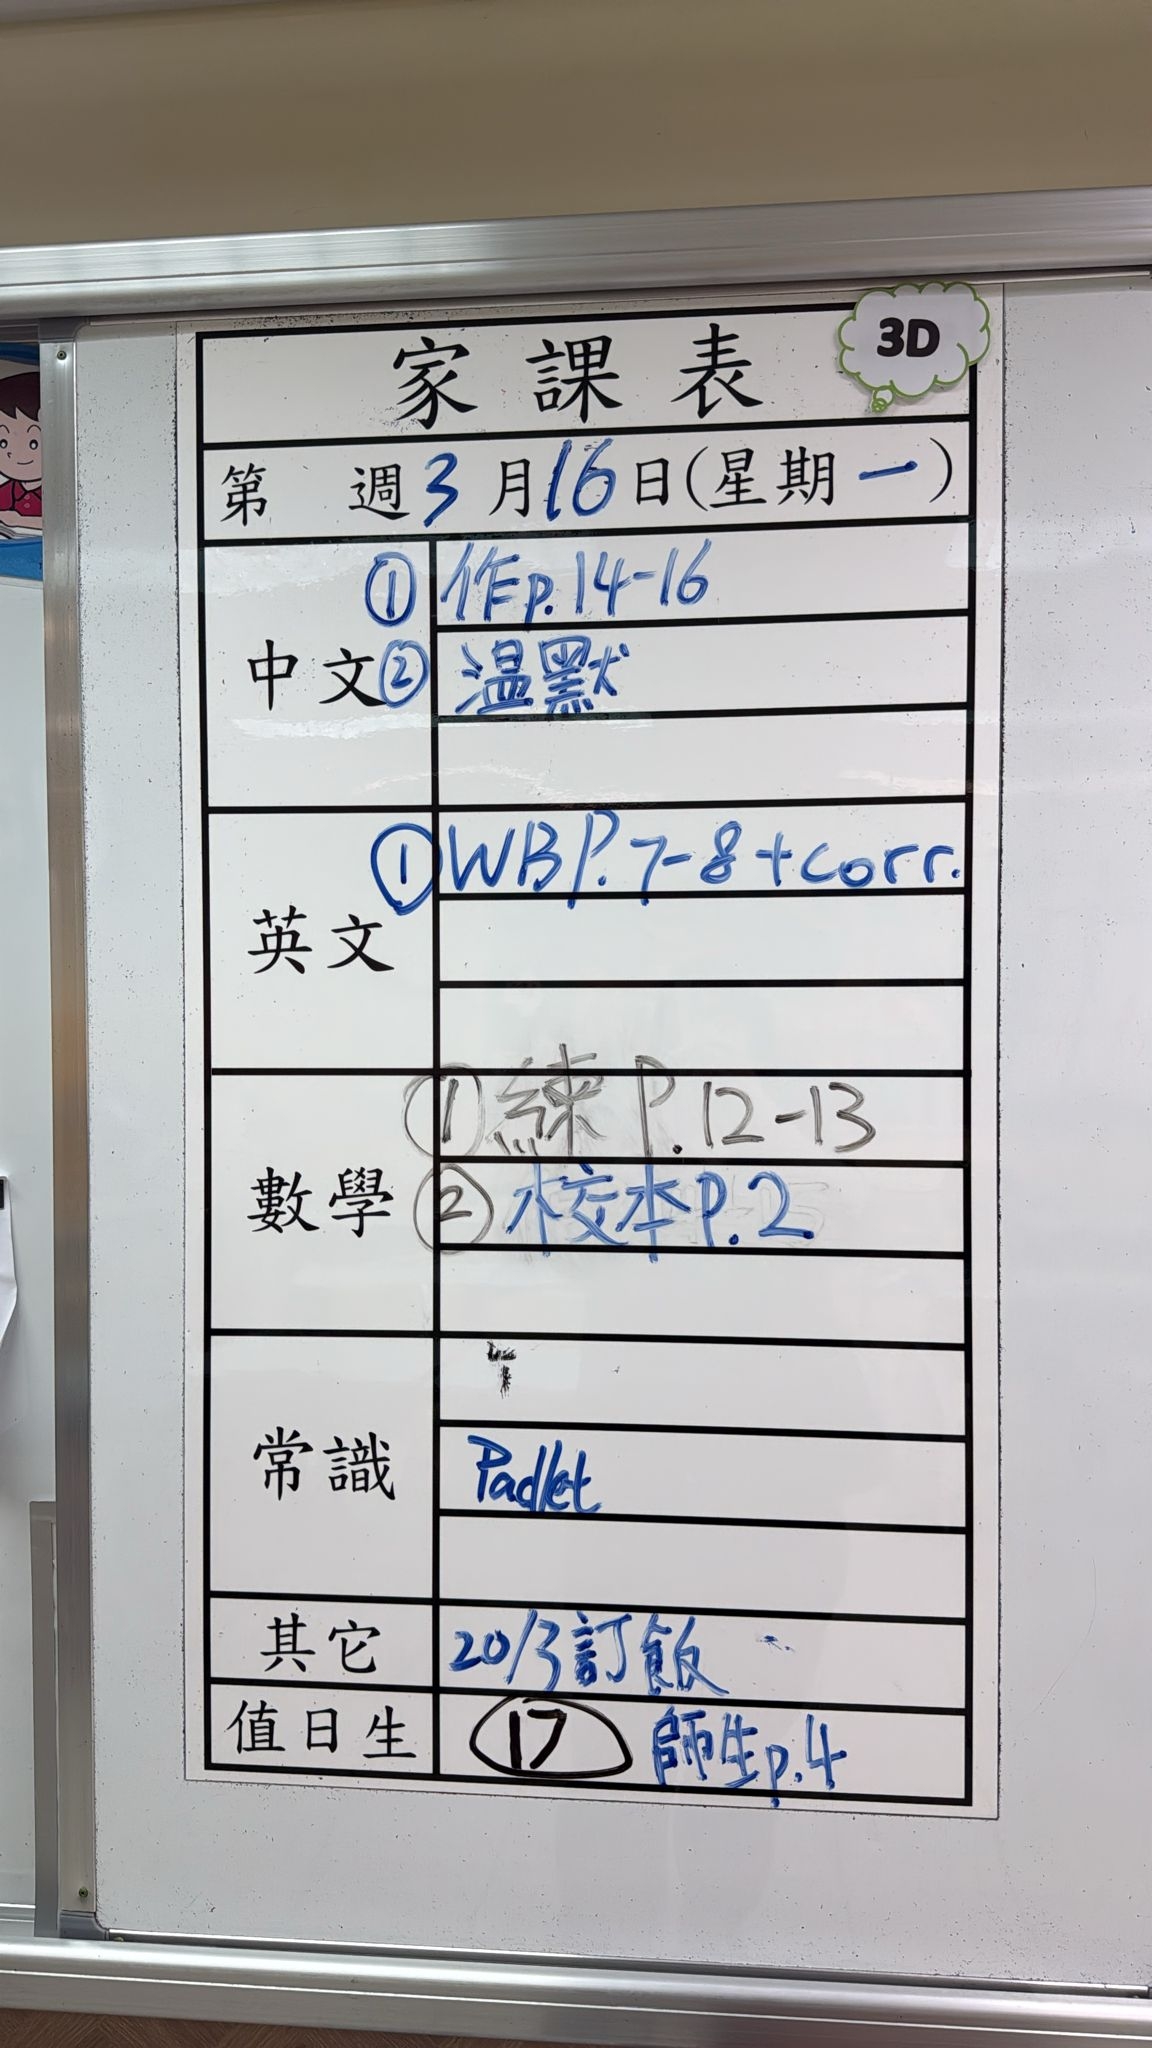 家課表
3D
第 週3月16日(星期一)
中文
① 作p.14-16
② 温默
英文
① WB P.7-8+corr.
數學
① 練 P.12-13
② 校本P.2
常識
Padlet
其它
20/3訂飯
值日生
17 師生p.4